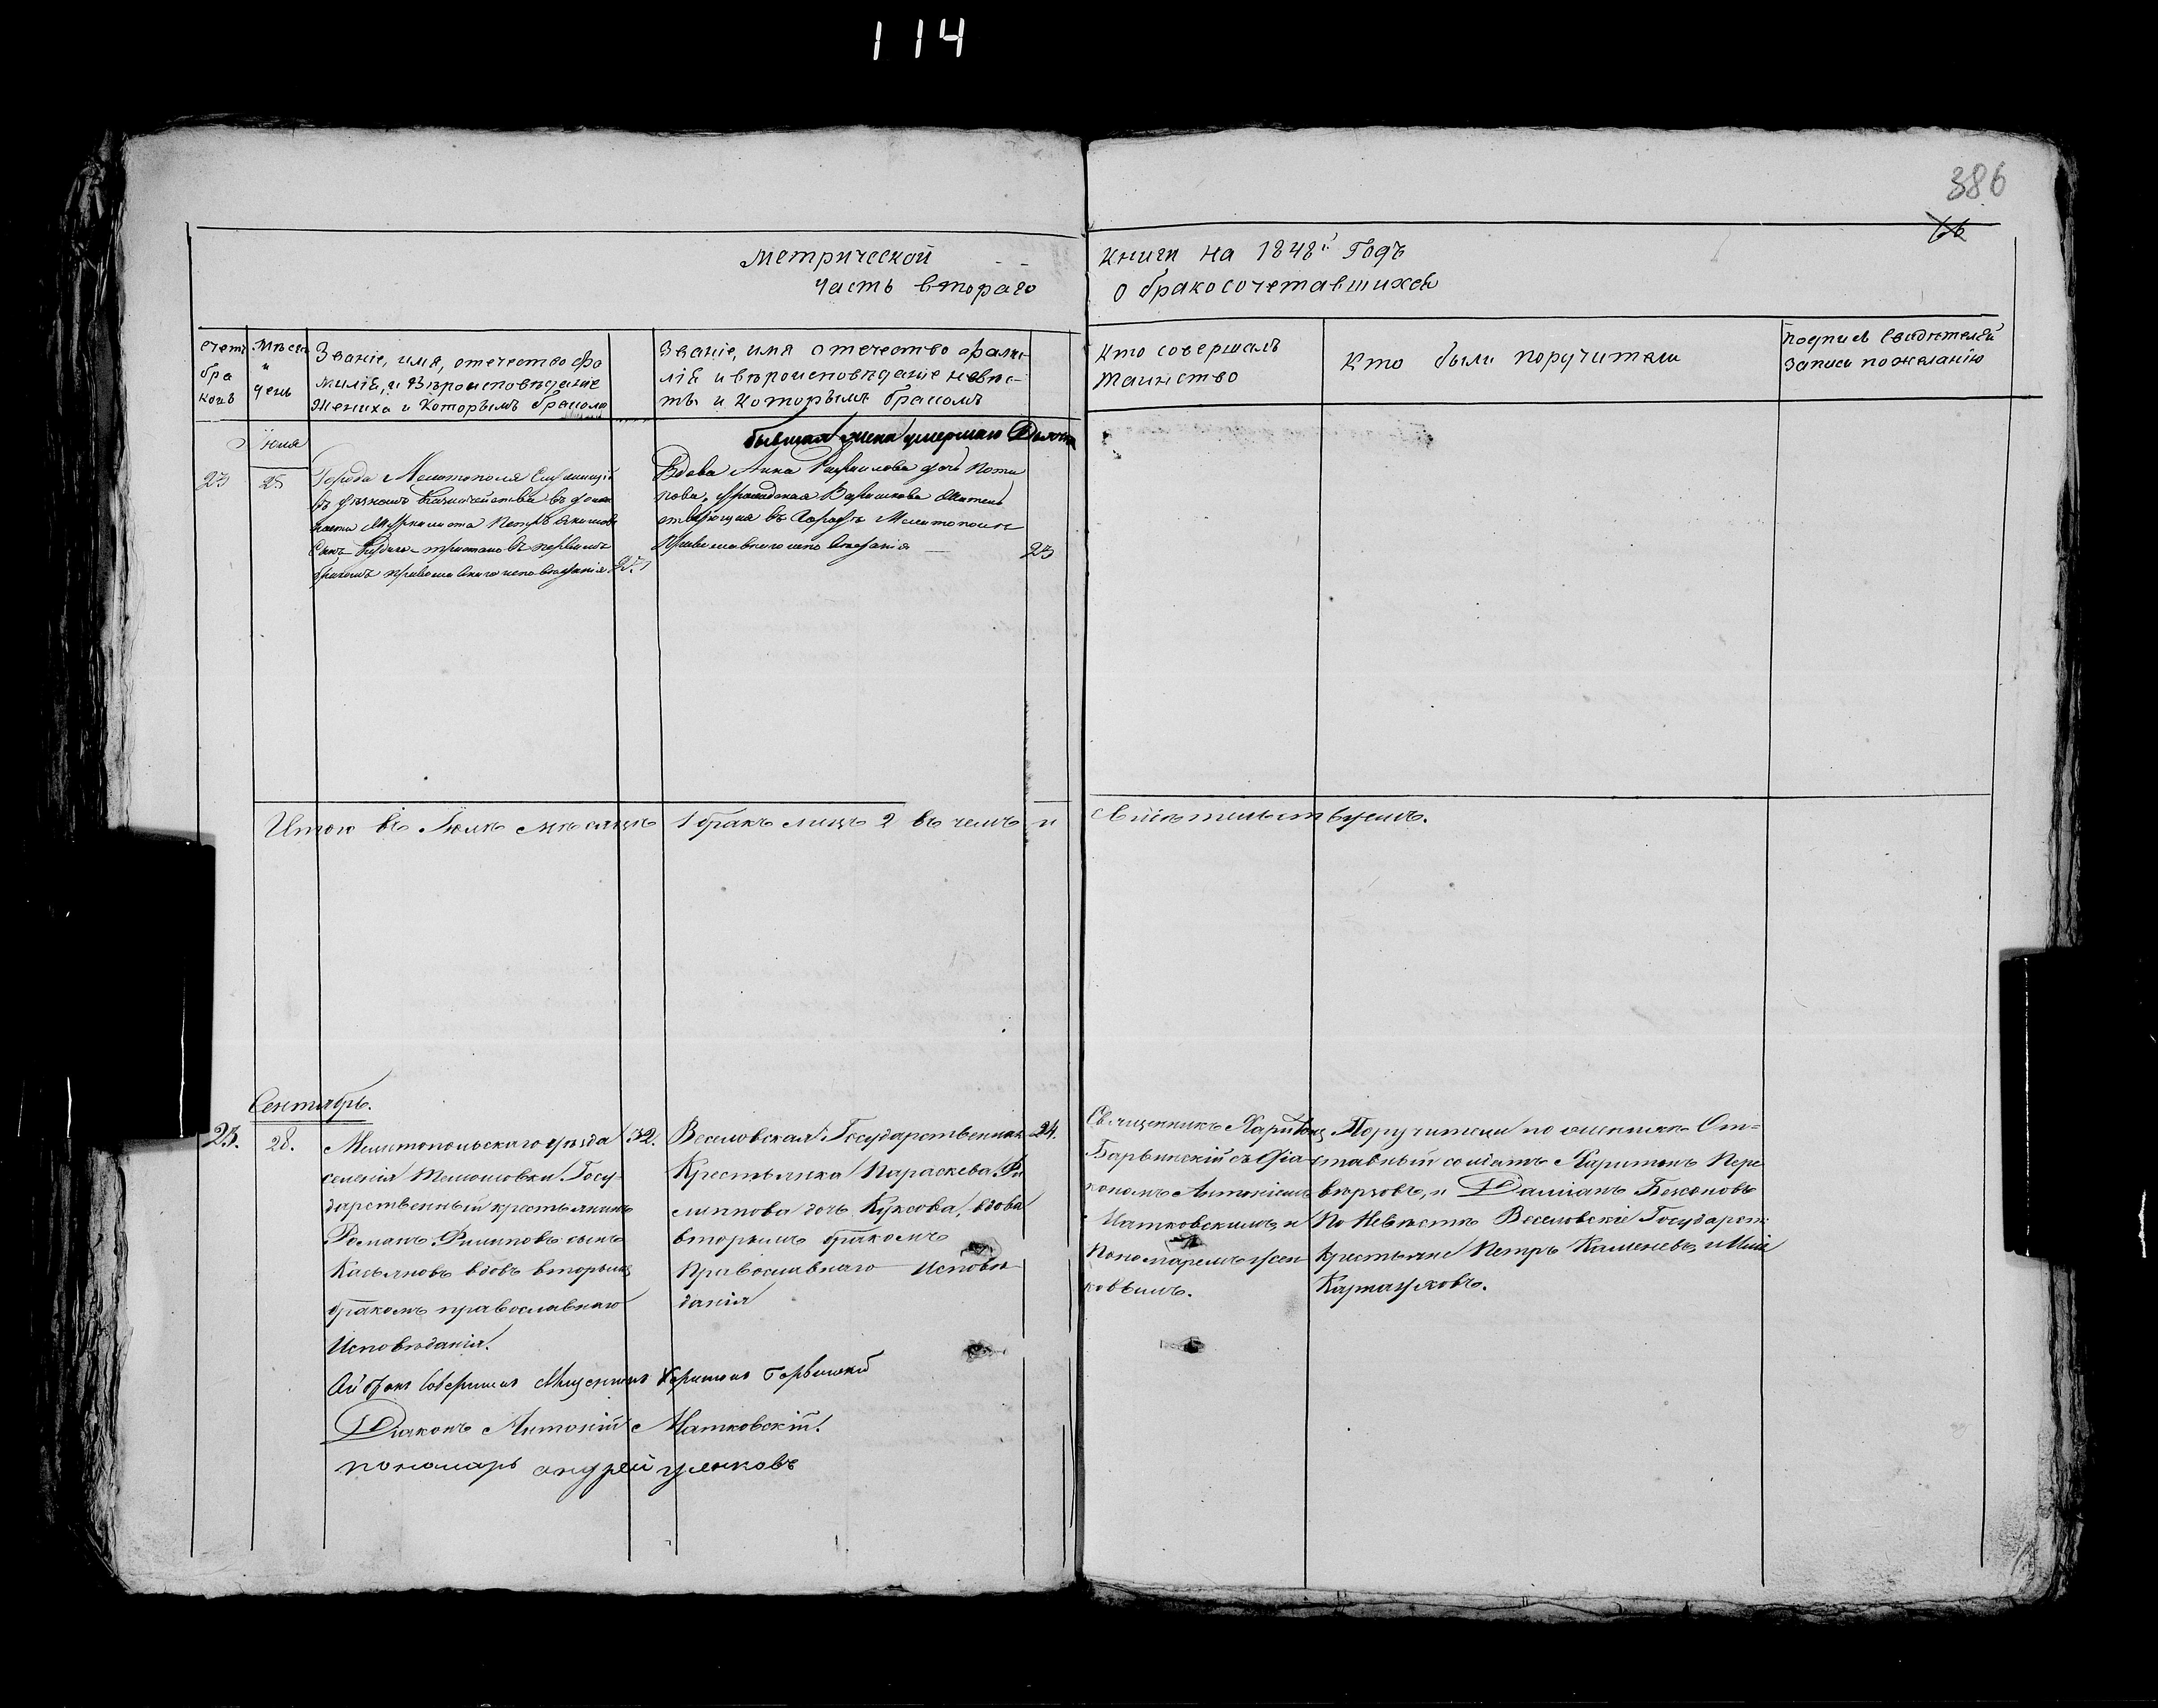 114
386
66
Метрической
часть втораго
книги на 1848й Годъ
о бракосочетавшихся
счетъ бра ковъ
Мѣсяцъ и день
Званіе, имя, отечество фа
милія, и вѣроисповѣданіе
Жениха и Которымъ бракомъ
Званіе, имя отечество фами-
лія и вѣроисповѣданіе невѣс-
ты и Которымъ бракомъ
Кто совершалъ
таинство
Кто были поручители
подпись свидѣтелей
запись по желанію
Іюля
бывшая жена умершаго
23
25
Города Мелитополя
Петръ
сынъ первымъ
бракомъ православнаго исповѣданія
27
Вдова Анна дочь
въ Городѣ Мелитополѣ
Православнаго исповѣданія —
23
Итого въ Іюлѣ мѣсяцѣ 1 бракъ лицъ 2 въ чемъ и свидѣтельствуемъ.
Сентябрь.
23.
28.
Мелитопольскаго уѣзда
селенія Тимошовки Госу-
дарственный крестьянинъ
Романъ Филиповъ сынъ
Касьяновъ вдовъ вторымъ
бракомъ православнаго
Исповѣданія.
32.
Веселовская Государственная
Крестьянка Параскева Фи
липпова дочь Куксова, вдова
вторымъ бракомъ
Православнаго Исповѣ-
данія
24.
Священникъ Харитонъ
Барвинскій съ Діа-
кономъ Антоніемъ
Матковскимъ и
Пономаремъ Усен
ковымъ.
Поручители по женихѣ От=
ставный солдатъ Харитонъ Пере
верзовъ, и Даміанъ Безсоновъ
По Невѣстѣ Веселовскіе Государст:
крестьяне Петръ Каменевъ и
Картауховъ.
Сей бракъ совершилъ Священникъ Харитонъ Барвинскій
Діаконъ Антоній Матковскій.
пономарь андрей усенковъ